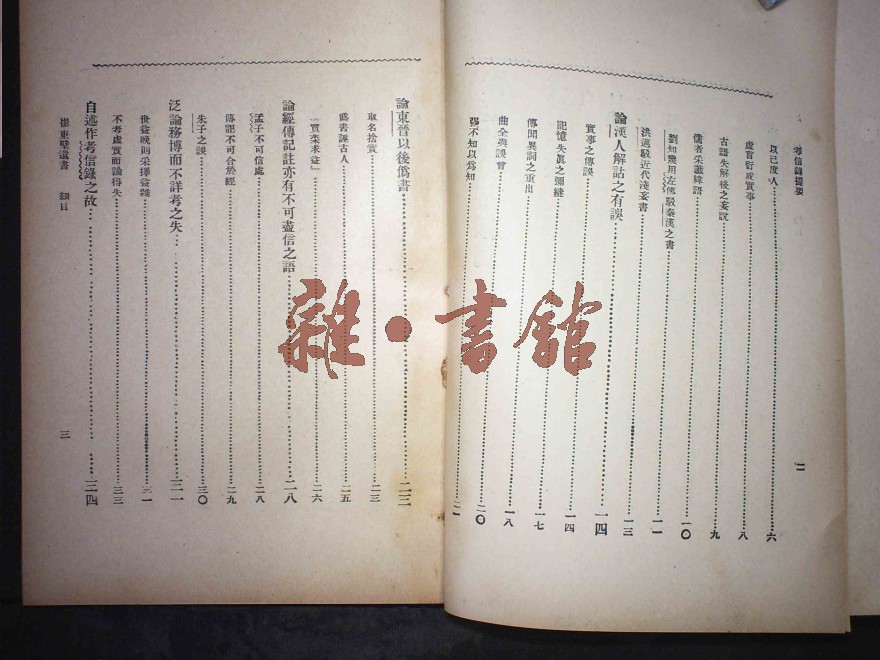 考信錄提要
二
以己度人 六
虛言衍成實事 八
古語失解後之妄說 九
儒者采讖緯語 一〇
劉知幾用左傳駁秦漢之書 一一
洪邁駁近代淺妄書 一三
論漢人解詁之有誤 一四
實事之傳誤 一四
記憶失真之彌縫 一七
傳聞異詞之重出 一八
曲全與誤會 二〇
強不知以為知 二一
論東晉以後偽書 二三
取名捨實 二三
偽書誣古人 二五
「買菜求益」 二六
論經傳記註亦有不可盡信之語 二八
孟子不可信處 二八
傳記不可合於經 二九
朱子之誤 三〇
泛論務博而不詳考之失 三一
世益晚則采擇益雜 三一
不考虛實而論得失 三三
自述作考信錄之故 三四
崔東壁遺書 細目
三
雜·書館